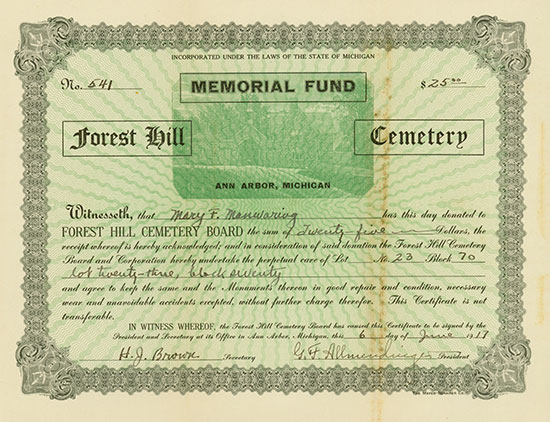 INCORPORATED UNDER THE LAWS OF THE STATE OF MICHIGAN
No. 541 $25.00
MEMORIAL FUND
Forest Hill Cemetery
ANN ARBOR, MICHIGAN
Witnesseth, that Mary F. Manwaring has this day donated to
FOREST HILL CEMETERY BOARD the sum of Twenty five Dollars, the
receipt whereof is hereby acknowledged; and in consideration of said donation the Forest Hill Cemetery
Board and Corporation hereby undertake the perpetual care of Lot No. 23 Block 70
lot twenty-three, block seventy
and agree to keep the same and the Monuments thereon in good repair and condition, necessary
wear and unavoidable accidents excepted, without further charge therefor. This Certificate is not
transferable.
IN WITNESS WHEREOF, the Forest Hill Cemetery Board has caused this Certificate to be signed by the
President and Secretary at its Office in Ann Arbor, Michigan, this 6 day of June 1917
H. J. Brown Secretary G. F. Allmendinger President